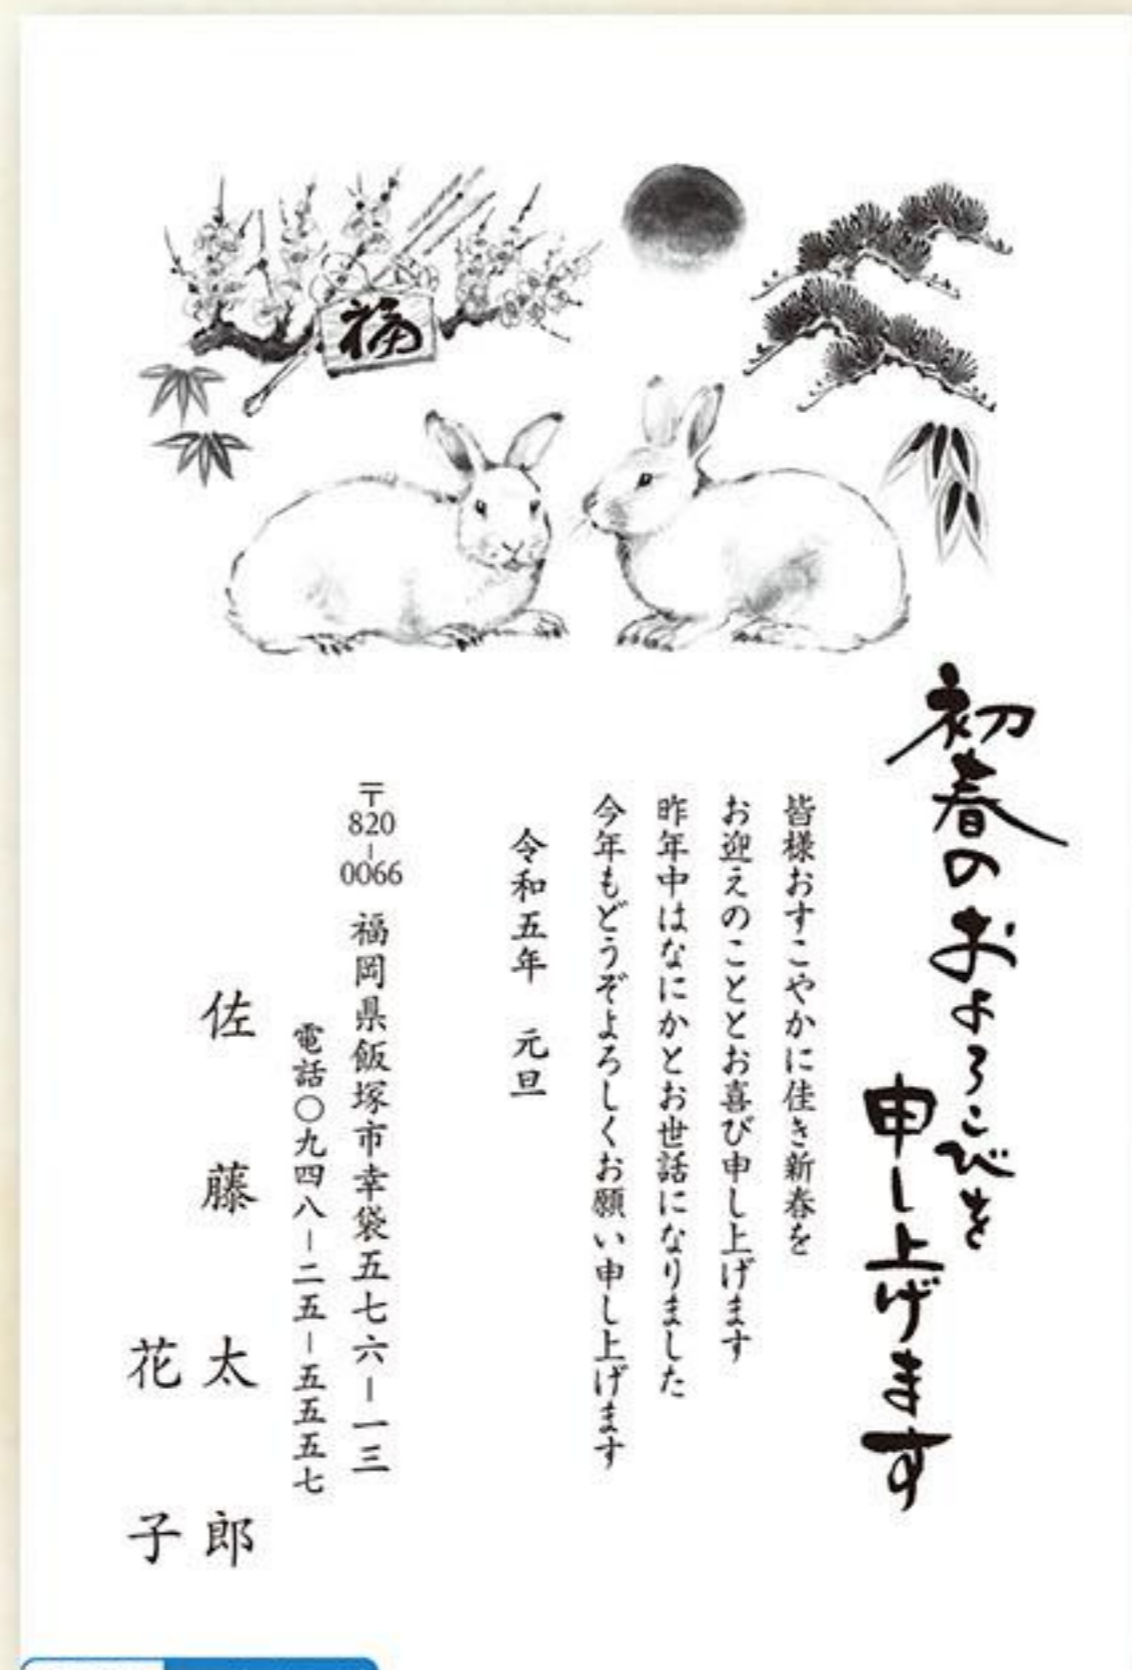 福
初春のおよろこびを
申し上げます
皆様おすこやかに佳き新春を
お迎えのこととお喜び申し上げます
昨年中はなにかとお世話になりました
今年もどうぞよろしくお願い申し上げます
令和五年　元旦
〒820-0066　福岡県飯塚市幸袋五七六ー一三
電話〇九四八ー二五ー五五五七
佐藤　太郎
花子